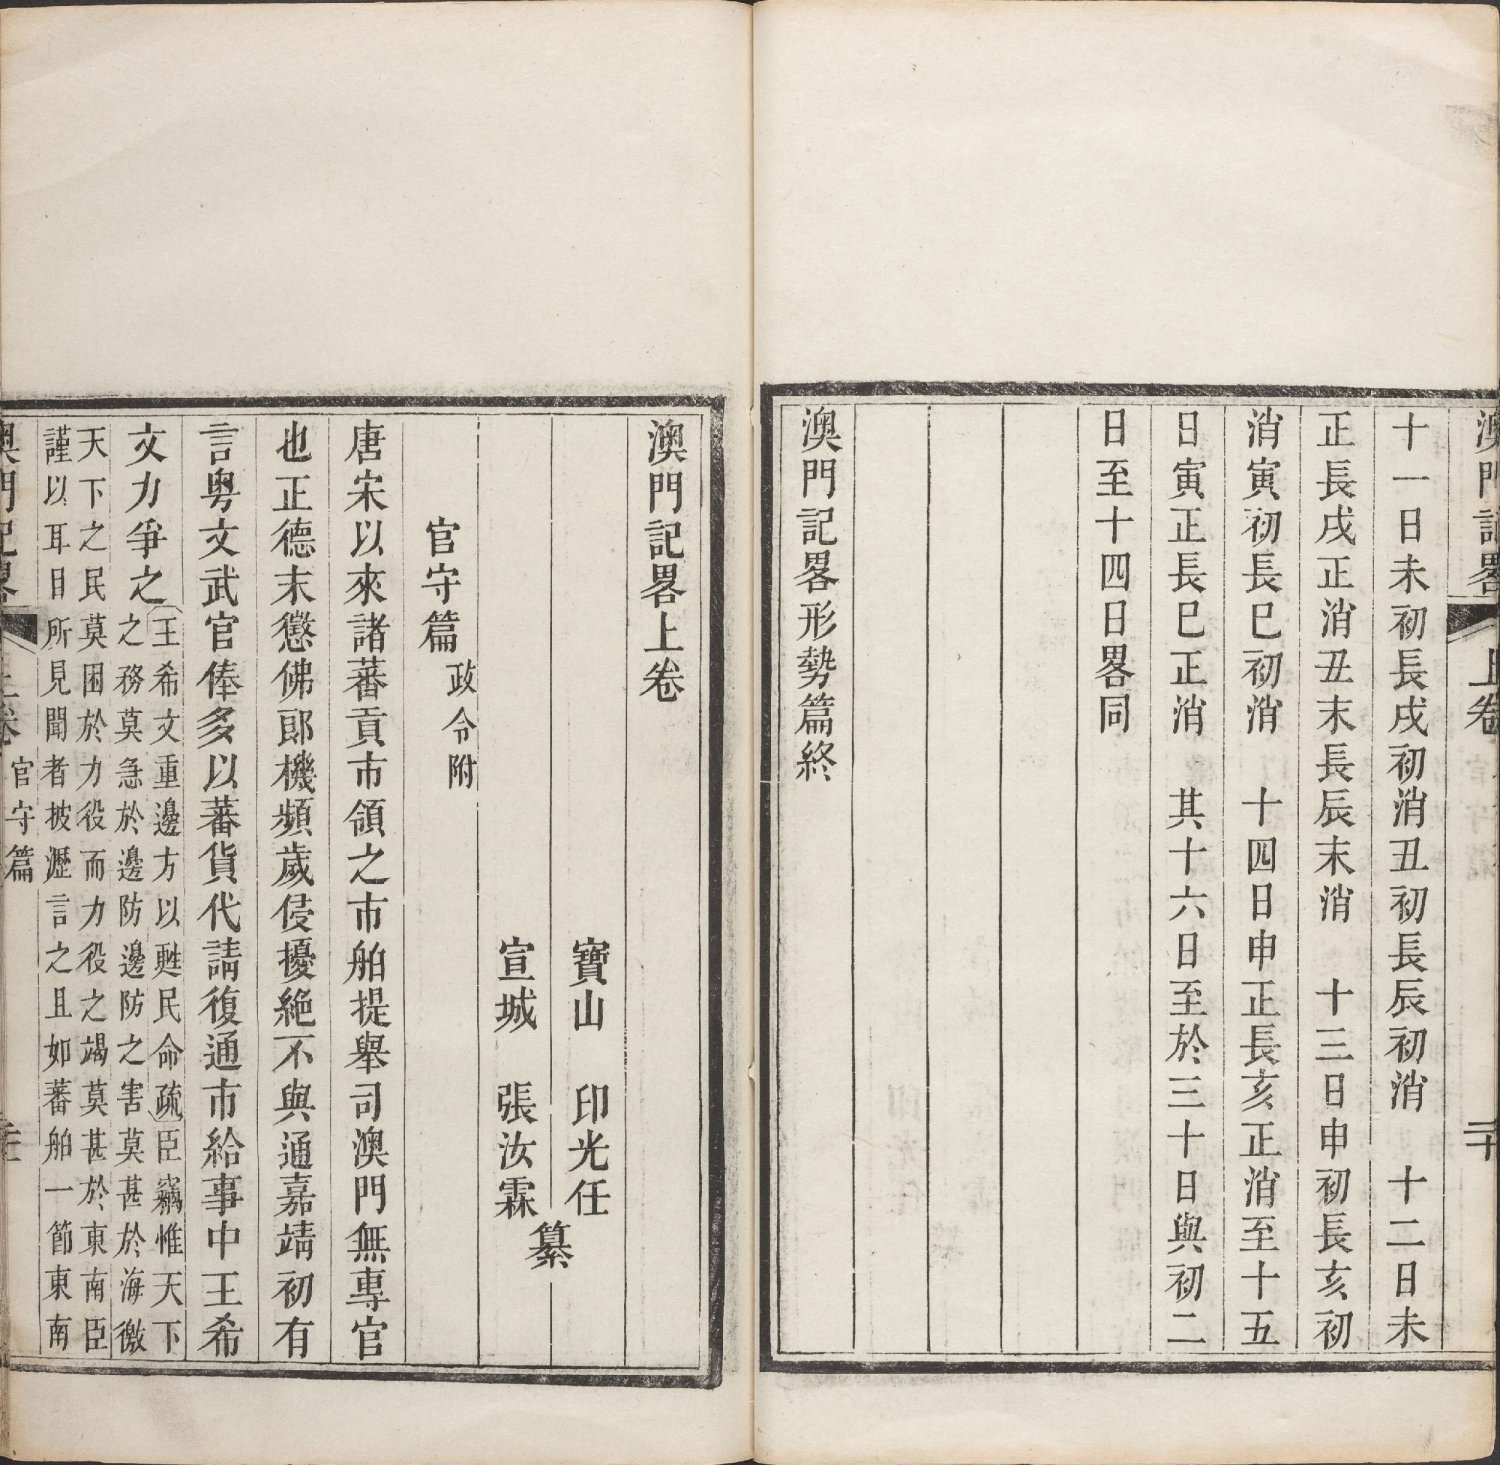 澳門記畧
上卷
二十
十一日未初長戌初消丑初長辰初消　十二日未
正長戌正消丑末長辰末消　十三日申初長亥初
消寅初長巳初消　十四日申正長亥正消至十五
日寅正長巳正消　其十六日至於三十日與初二
日至十四日畧同
澳門記畧形勢篇終
澳門記畧上卷
寶山　印光任
宣城　張汝霖
纂
官守篇政令附
唐宋以來諸蕃貢市領之市舶提舉司澳門無專官
也正德末懲佛郎機頻歲侵擾絕不與通嘉靖初有
言粵文武官俸多以蕃貨代請復通市給事中王希
文力爭之
王希文重邊方以甦民命疏臣竊惟天下
之務莫急於邊防邊防之害莫甚於海徼
天下之民莫困於力役而力役之竭莫甚於東南臣
謹以耳目所見聞者披瀝言之且如蕃舶一節東南
澳門記畧
上卷
官守篇